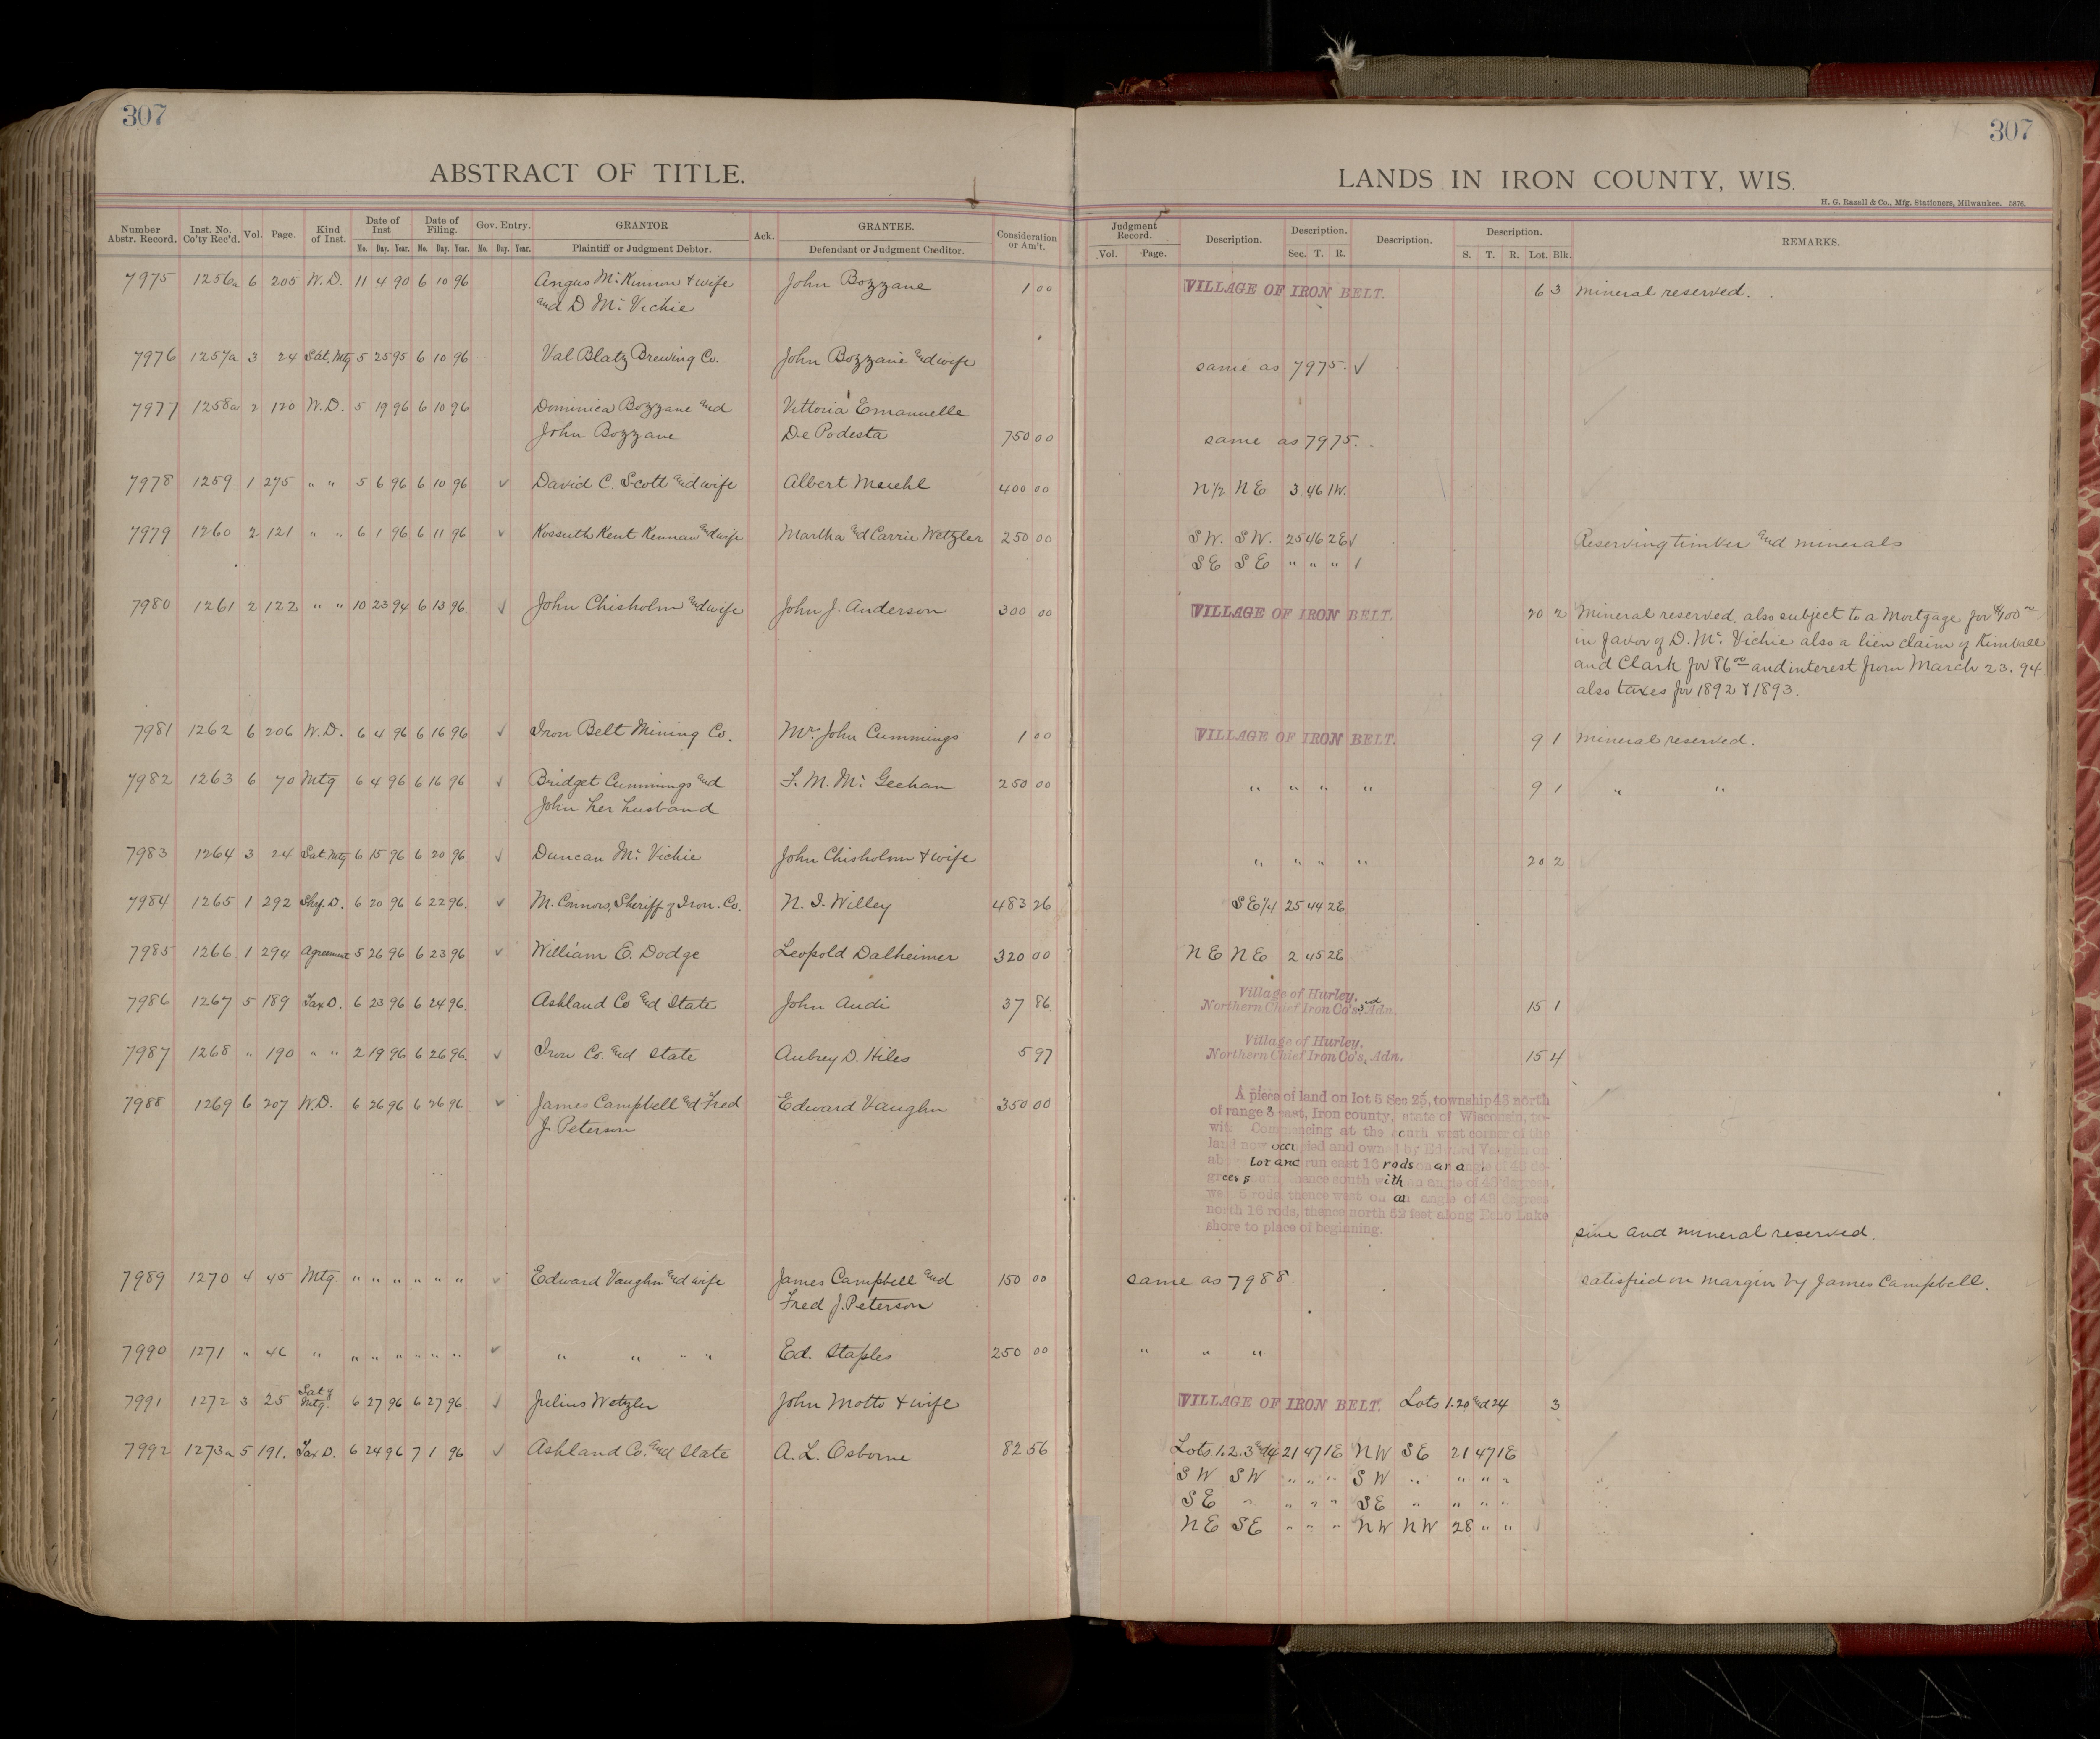 307
ABSTRACT OF TITLE.
Number Abstr. Record. Inst. No. Co'ty Rec'd. Vol. Page. Kind of Inst. Date of Inst Date of Filing. Gov. Entry. GRANTOR Ack. GRANTEE. Consideration or Am't.
Mo. Day. Year. Mo. Day. Year. Mo. Day. Year. Plaintiff or Judgment Debtor. Defendant or Judgment Creditor.
7975 1256a 6 205 W.D. 11 4 90 6 10 96 Angus Mc Kinnon & wife John Bozzane 1 00
and D Mc Vichie
7976 1257a 3 24 Sat. Mtg 5 25 95 6 10 96 Val Blatz Brewing Co. John Bozzane and wife
7977 1258a 2 120 W.D. 5 19 96 6 10 96 Dominica Bozzane and Vittoria Emanuelle
John Bozzane De Podesta 750 00
7978 1259 1 275 " " 5 6 96 6 10 96 √ David C. Scott and wife Albert 400 00
7979 1260 2 121 " " 6 1 96 6 11 96 √ Kossuth Kent Kennan and wife Martha and Carrie Wetzler 250 00
7980 1261 2 122 " " 10 23 94 6 13 96 √ John Chisholm and wife John J. Anderson 300 00
7981 1262 6 206 W.D. 6 4 96 6 16 96 √ Iron Belt Mining Co. Mrs John Cummings 1 00
7982 1263 6 70 Mtg 6 4 96 6 16 96 √ Bridget Cummings and F. M. Mc Geehan 250 00
John her husband
7983 1264 3 24 Sat. Mtg 6 15 96 6 20 96 √ Duncan Mc Vichie John Chisholm & wife
7984 1265 1 292 Shf. D. 6 20 96 6 22 96 √ M. Connors, Sheriff of Iron Co. N. I. Willey 483 26
7985 1266 1 294 Agreement 5 26 96 6 23 96 √ William E. Dodge Leopold Dalheimer 320 00
7986 1267 5 189 Tax D. 6 23 96 6 24 96 Ashland Co and State John Audi 37 86
7987 1268 " 190 " " 2 19 96 6 26 96 √ Iron Co. and State Aubrey D. Hiles 5 97
7988 1269 6 207 W.D. 6 26 96 6 26 96 √ James Campbell and Fred Edward Vaughn 350 00
J. Peterson
7989 1270 4 45 Mtg. " " " " " " √ Edward Vaughn and wife James Campbell and 150 00
Fred J. Peterson
7990 1271 " 46 " " " " " " " √ " " " " Ed. Staples 250 00
7991 1272 3 25 Sat of Mtg. 6 27 96 6 27 96 √ Julius Wetzler John Motto & wife
7992 1273a 5 191. Tax D. 6 24 96 7 1 96 √ Ashland Co. and State A. L. Osborne 82 56
307
LANDS IN IRON COUNTY, WIS.
H. G. Razall & Co., Mfg. Stationers, Milwaukee. 5876.
Judgment Record. Description. Description. Description. Description. REMARKS.
Vol. Page. Sec. T. R. S. T. R. Lot. Blk.
VILLAGE OF IRON BELT. 6 3 Mineral reserved.
same as 7975. √
same as 7975.
N 1/2 NE 3 46 1W.
SW. SW. 25 46 2E √ Reserving timber and minerals
SE SE " " "
VILLAGE OF IRON BELT. 20 2 Mineral reserved, also subject to a Mortgage for $100 00
in favor of D. Mc Vichie also a lien claim of Kimball
and Clark for 86 00 and interest from March 23. 94
also taxes for 1892 & 1893.
VILLAGE OF IRON BELT. 9 1 Mineral reserved.
" " " " 9 1 " "
" " " " 20 2
SE 1/4 25 44 2E
NE NE 2 45 2E
Village of Hurley,
Northern Chief Iron Co's 3rd Adn. 15 1
Village of Hurley,
Northern Chief Iron Co's, Adn. 15 4
A piece of land on lot 5 Sec 25, township 43 north
of range 3 east, Iron county, state of Wisconsin, to-
wit: Commencing at the south west corner of the
land now occupied and owned by Edward Vaughn on
Lot and run east 16 rods on an angle of 43 de-
grees south, thence south with an angle of 43 degrees,
rods, thence west on an angle of 43 degrees
north 16 rods, thence north 82 feet along Echo Lake
shore to place of beginning.
pine and mineral reserved.
same as 7988 satisfied on margin by James Campbell.
" " "
VILLAGE OF IRON BELT. Lots 1. 20 and 24 3
Lots 1. 2. 3 and 4 21 47 1E NW SE 21 47 1E
SW SW " " " SW " " " "
SE " " " " SE " " " "
NE SE " " " NW NW 28 " "